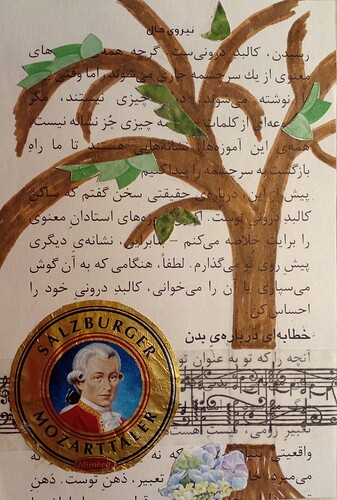 نیروی حال
رسیدن، کالبدِ درونی‌ست. گرچه همه‌ی های
معنوی از یك سرچشمه جاری می‌شوند، اما وقتی
نوشته می‌شوند، چیزی نیستند، مگر
از کلمات چیزی جُز نشانه نیست.
همه‌ی این آموزه‌ها نشانه‌هایی هستند تا ما راهِ
بازگشت به سرچشمه را پیدا کنیم
پیش از این، درباره‌ی حقیقتی سخن گفتم که ساکنِ
کالبدِ درونی توست. استادان معنوی
را برایت خلاصه می‌کنم – بنابراین، نشانه‌ی دیگری
پیش روی تو می‌گذارم. لطفاً، هنگامی که به آن گوش
می‌سپاری یا آن را می‌خوانی، کالبدِ درونی خود را
احساس کن
خطابه‌ای درباره‌ی بدن
آنچه را که تو به عنوان
تعبیر رومی، است
واقعیتی
تعبیر، ذهنِ توست. ذهن
SALZBURGER
MOZARTTALER
Mirabell